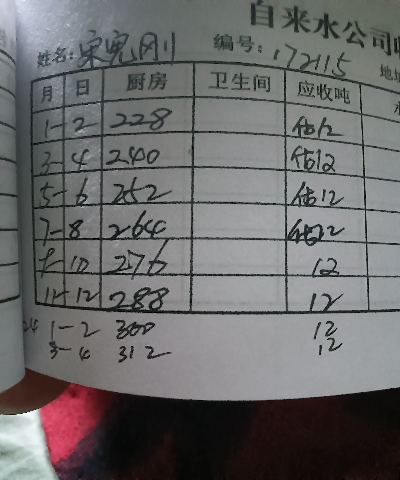 自来水公司收
姓名:宋宪刚 编号:172115
地址
月 日 厨房 卫生间 应收吨
1-2 228 估12
3-4 240 估12
5-6 252 估12
7-8 264 估12
9-10 276 12
11-12 288 12
24 1-2 300 12
3-4 312 12